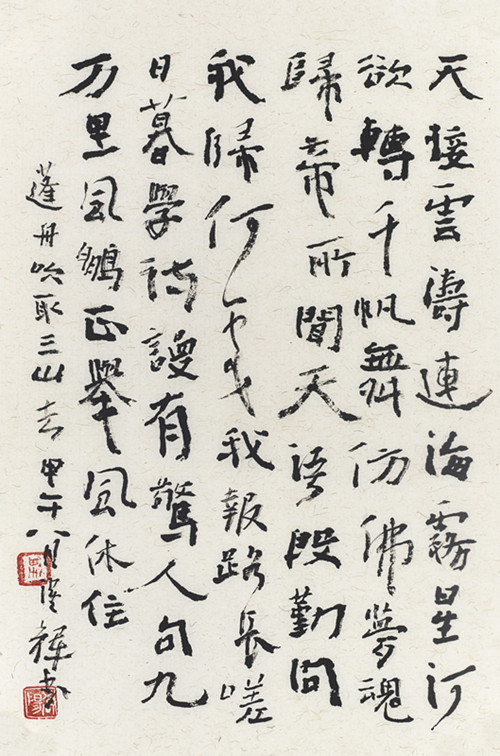 天接雲濤連海霧星河
欲轉千帆舞仿佛夢魂
歸帝所聞天語殷勤問
我歸何處我報路長嗟
日暮學詩謾有驚人句九
万里風鵬正舉風休住
蓬舟吹取三山去甲午八月輝書